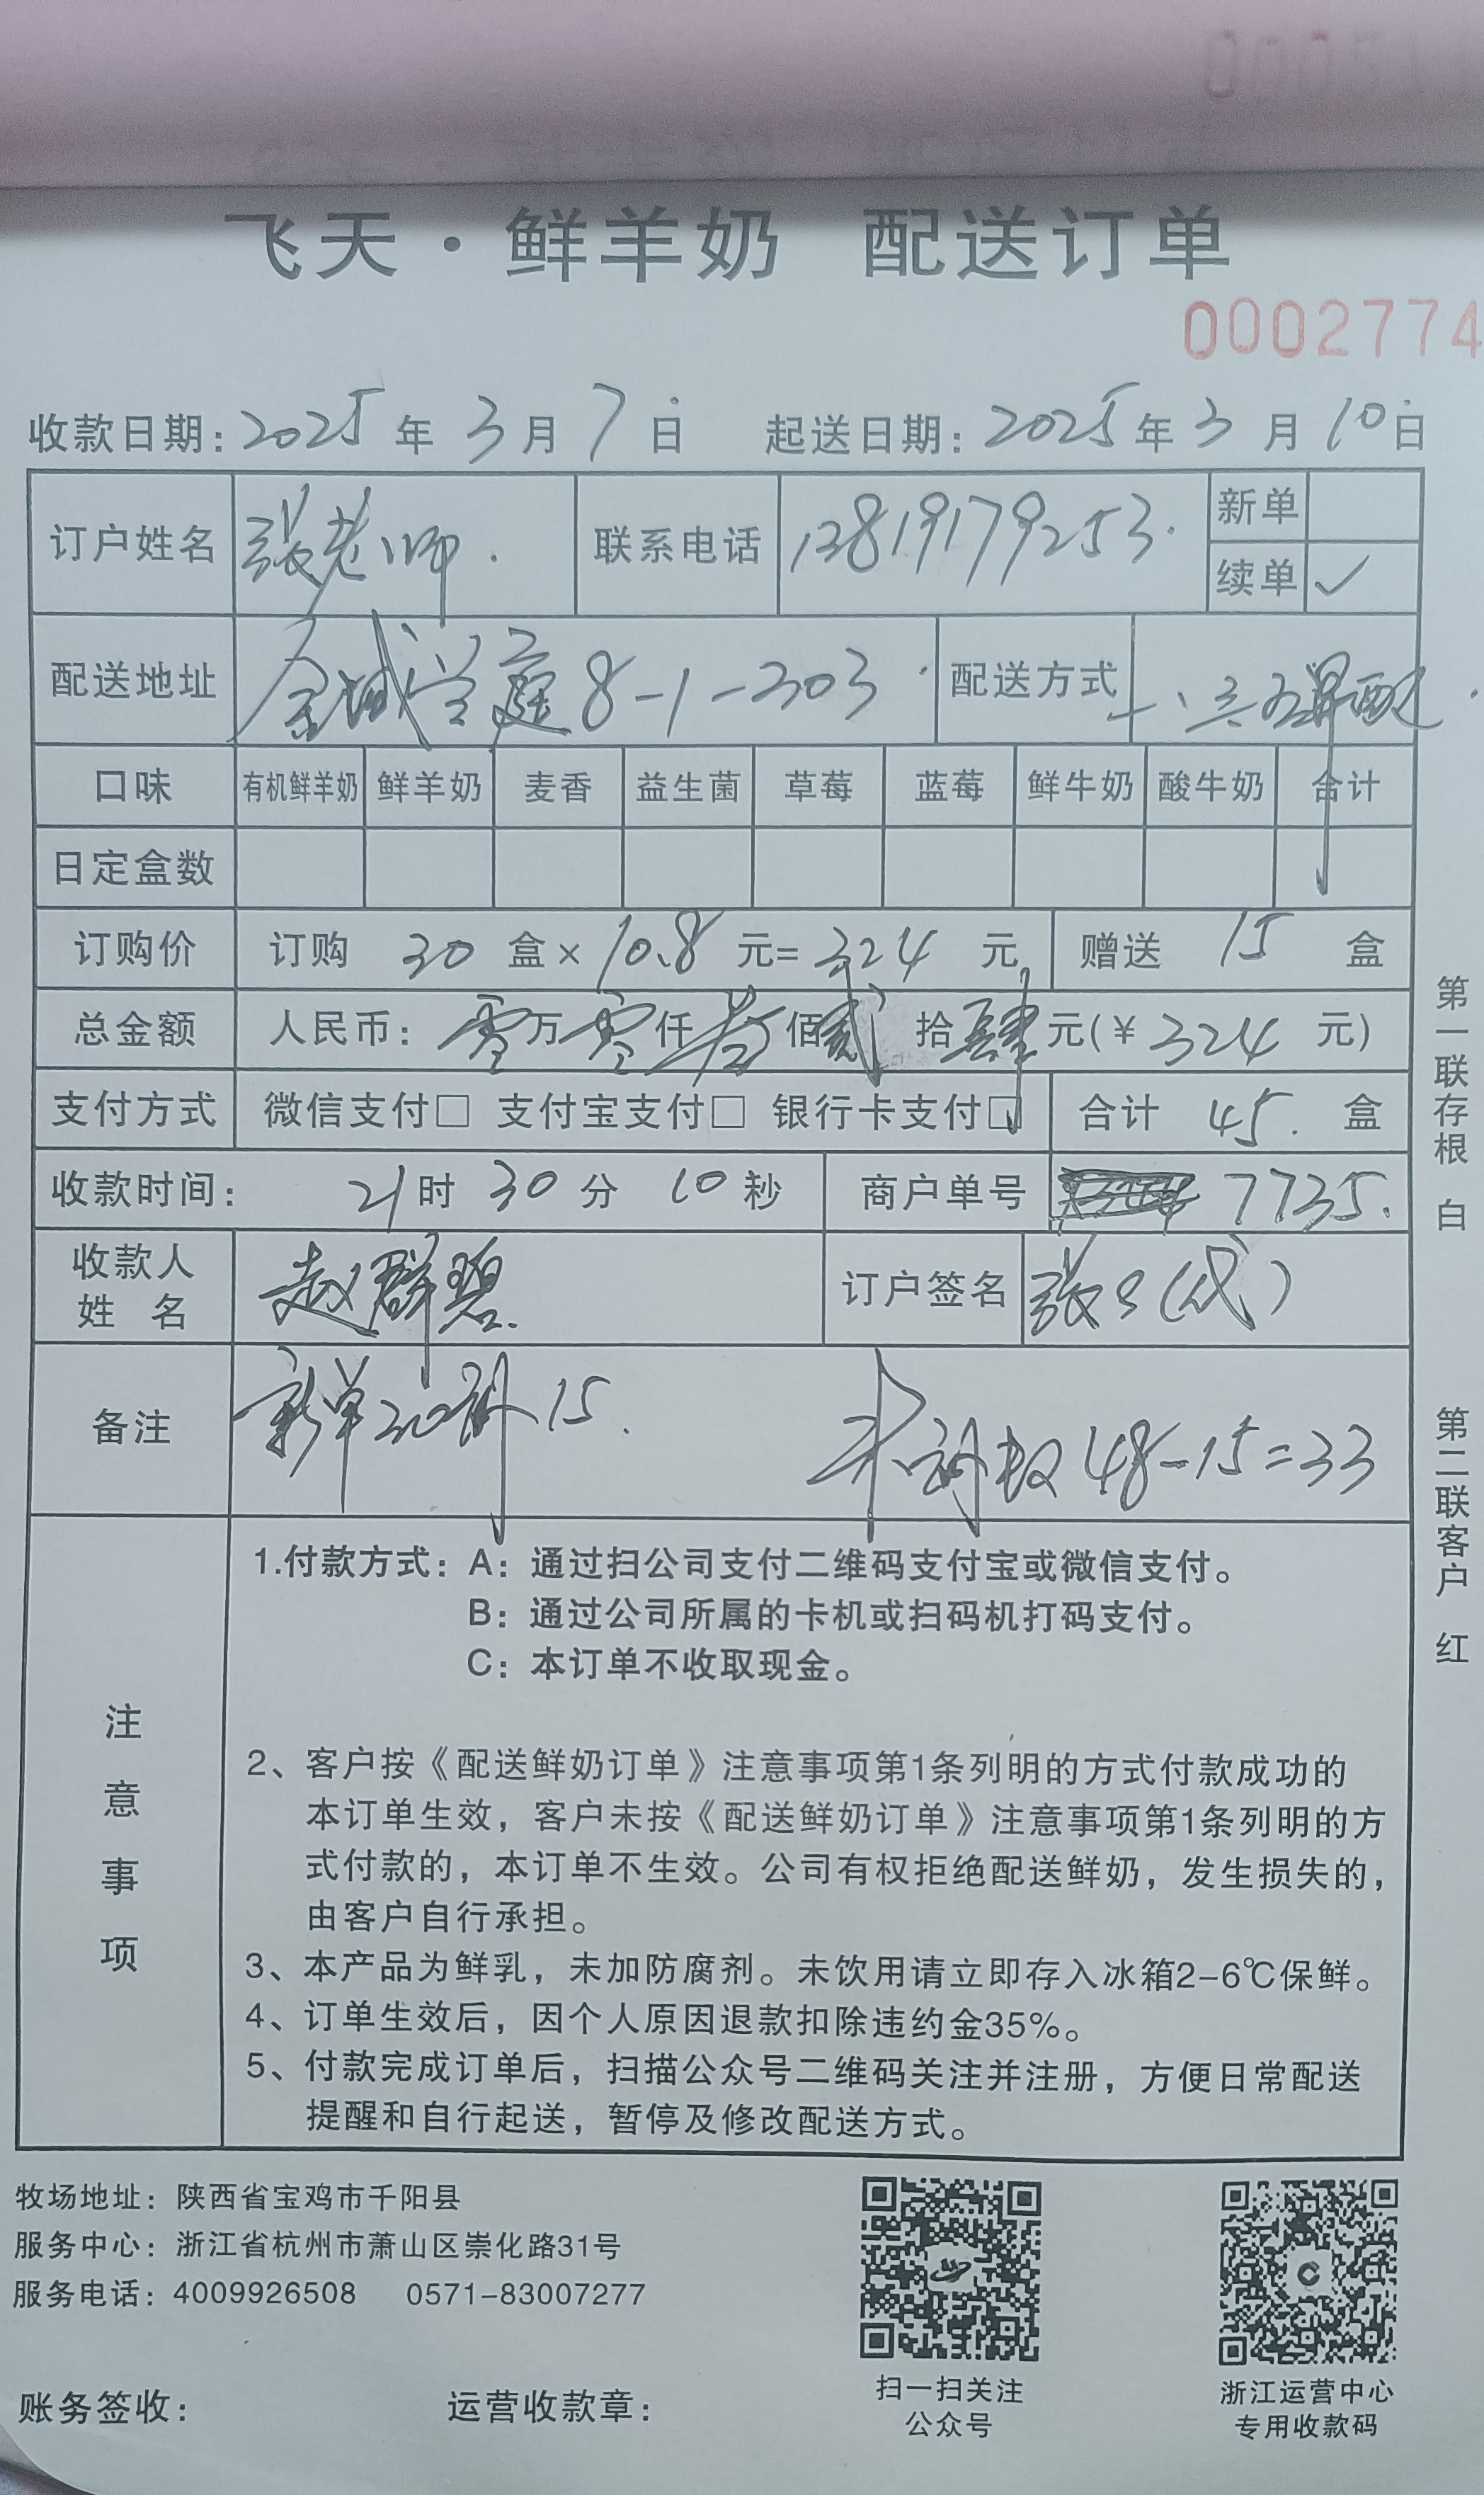 飞天·鲜羊奶 配送订单
0002774
收款日期：2025年3月7日 起送日期：2025年3月10日
订户姓名 张老师. 联系电话 13819179253. 新单
续单 ✓
配送地址 金城学庭8-1-303 配送方式 一、三、五
口味 有机鲜羊奶 鲜羊奶 麦香 益生菌 草莓 蓝莓 鲜牛奶 酸牛奶 合计
日定盒数
订购价 订购 30 盒× 10.8 元= 324 元 赠送 15 盒
总金额 人民币：零万零仟叁佰贰拾肆元(￥324元)
支付方式 微信支付□ 支付宝支付□ 银行卡支付□ 合计 45. 盒
收款时间： 21时30分10秒 商户单号 7735.
收款人姓名 赵群碧. 订户签名 张(代)
备注 新单30补15. 未补奶48-15=33
注意事项
1.付款方式：A：通过扫公司支付二维码支付宝或微信支付。
B：通过公司所属的卡机或扫码机打码支付。
C：本订单不收取现金。
2、客户按《配送鲜奶订单》注意事项第1条列明的方式付款成功的
本订单生效，客户未按《配送鲜奶订单》注意事项第1条列明的方
式付款的，本订单不生效。公司有权拒绝配送鲜奶，发生损失的，
由客户自行承担。
3、本产品为鲜乳，未加防腐剂。未饮用请立即存入冰箱2-6℃保鲜。
4、订单生效后，因个人原因退款扣除违约金35%。
5、付款完成订单后，扫描公众号二维码关注并注册，方便日常配送
提醒和自行起送，暂停及修改配送方式。
第一联存根 白
第二联客户 红
牧场地址：陕西省宝鸡市千阳县
服务中心：浙江省杭州市萧山区崇化路31号
服务电话：4009926508 0571-83007277
扫一扫关注
公众号
浙江运营中心
专用收款码
账务签收： 运营收款章：